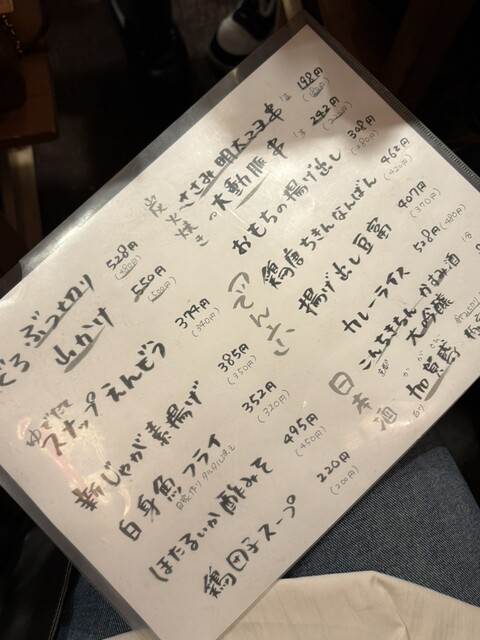 炭火焼き
ささみ明太マヨ串 1本 198円
(180円)
大動脈串 1本 242円
おもちの揚げ出し 308円
(280円)
鶏唐ちきんなんばん 462円
(420円)
揚げ出し豆富 407円
(370円)
カレーライス 528円
(480円)
日本酒
こんちきちん かすみ酒
大吟醸
加賀鳶
ぶつ切り 528円
(480円)
山かけ 550円
(500円)
ゆでたて
スナップえんどう 374円
(340円)
新じゃが素揚げ 385円
(350円)
白身魚フライ 352円
(320円)
ほたるいか酢みそ 495円
(450円)
鶏団子スープ 220円
(200円)